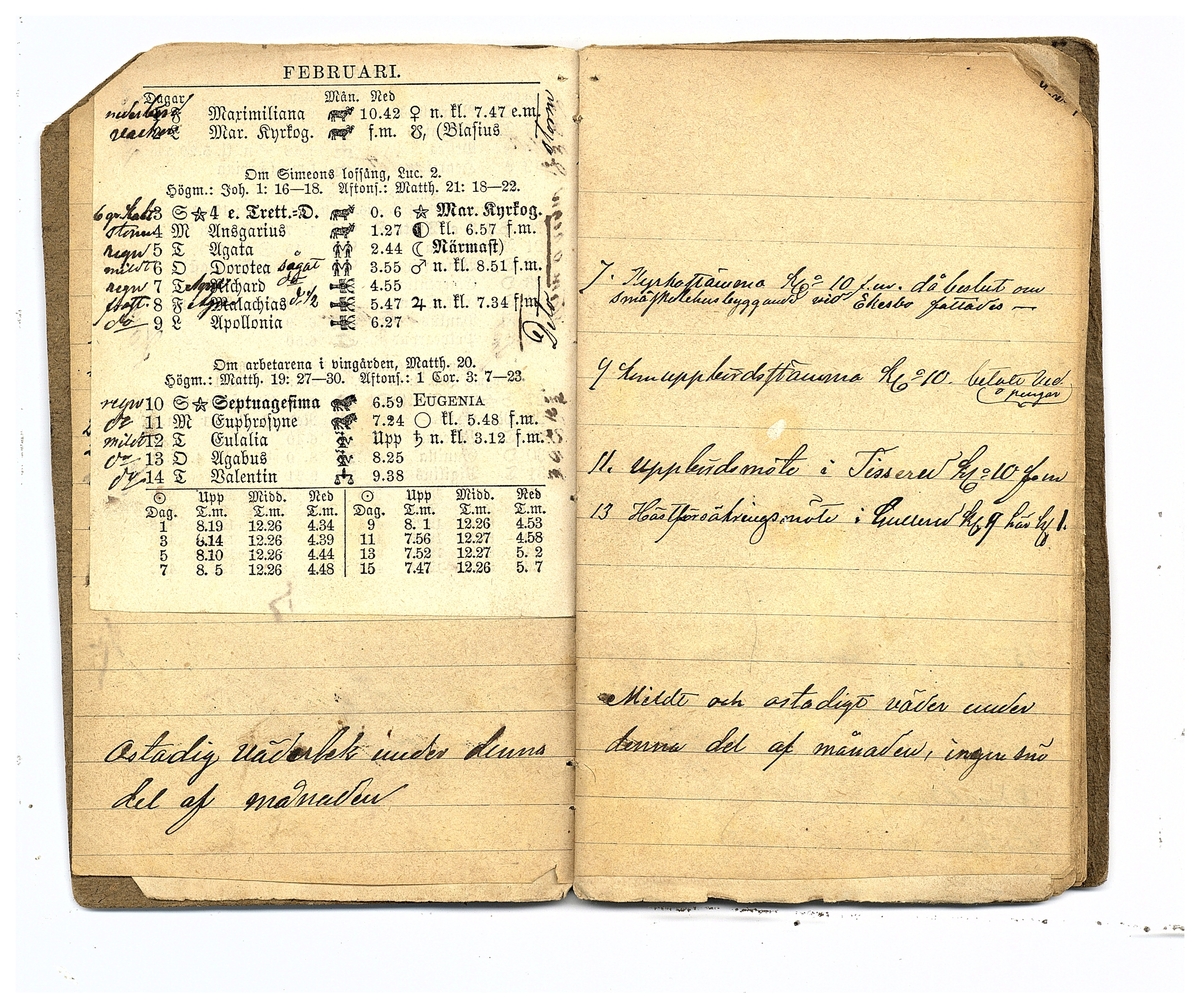 FEBRUARI.
Dagar Mån. Ned
Maximiliana 10.42 ♀ n. kl. 7.47 e.m.
L Mar. Kyrkog. f.m. ☋, (Blasius
Om Simeons lofsång, Luc. 2.
Högm.: Joh. 1: 16—18. Aftons.: Matth. 21: 18—22.
6 gr. Kalt 3 S ☆ 4 e. Trett.=D. 0. 6 ☆ Mar. Kyrkog.
storm 4 M Ansgarius 1.27 ◐ kl. 6.57 f.m.
regn 5 T Agata 2.44 ☾ Närmast)
mildt 6 O Dorotea sågat 3.55 ♂ n. kl. 8.51 f.m.
regn 7 T Richard do 4.55
frost 8 F Malachias 5.47 ♃ n. kl. 7.34 f.m.
do 9 L Apollonia 6.27
Om arbetarena i vingården, Matth. 20.
Högm.: Matth. 19: 27—30. Aftons.: 1 Cor. 3: 7—23.
regn 10 S ☆ Septuagesima 6.59 EUGENIA
do 11 M Euphrosyne 7.24 ○ kl. 5.48 f.m.
mildt 12 T Eulalia Upp ♄ n. kl. 3.12 f.m.
do 13 O Agabus 8.25
do 14 T Valentin 9.38
☉ Upp Midd. Ned ☉ Upp Midd. Ned
Dag. T.m. T.m. T.m. Dag. T.m. T.m. T.m.
1 8.19 12.26 4.34 9 8. 1 12.26 4.53
3 8.14 12.26 4.39 11 7.56 12.27 4.58
5 8.10 12.26 4.44 13 7.52 12.27 5. 2
7 8. 5 12.26 4.48 15 7.47 12.26 5. 7
Ostadig väderlek under denna
del af månaden
7. Kyrkostämma Kl 10 f.m. då beslut om
småskolehusbyggand vid Ekesbo fattades —
9 kronuppbördsstämma Kl 10. betalt Ved
o pengar
11. Uppbördsmöte i Tissered Kl 10 f.m
13 Hästförsäkringsmöte i Gullered Kl 9 här Kl 1.
Mildt och ostadigt väder under
denna del af månaden, ingen snö